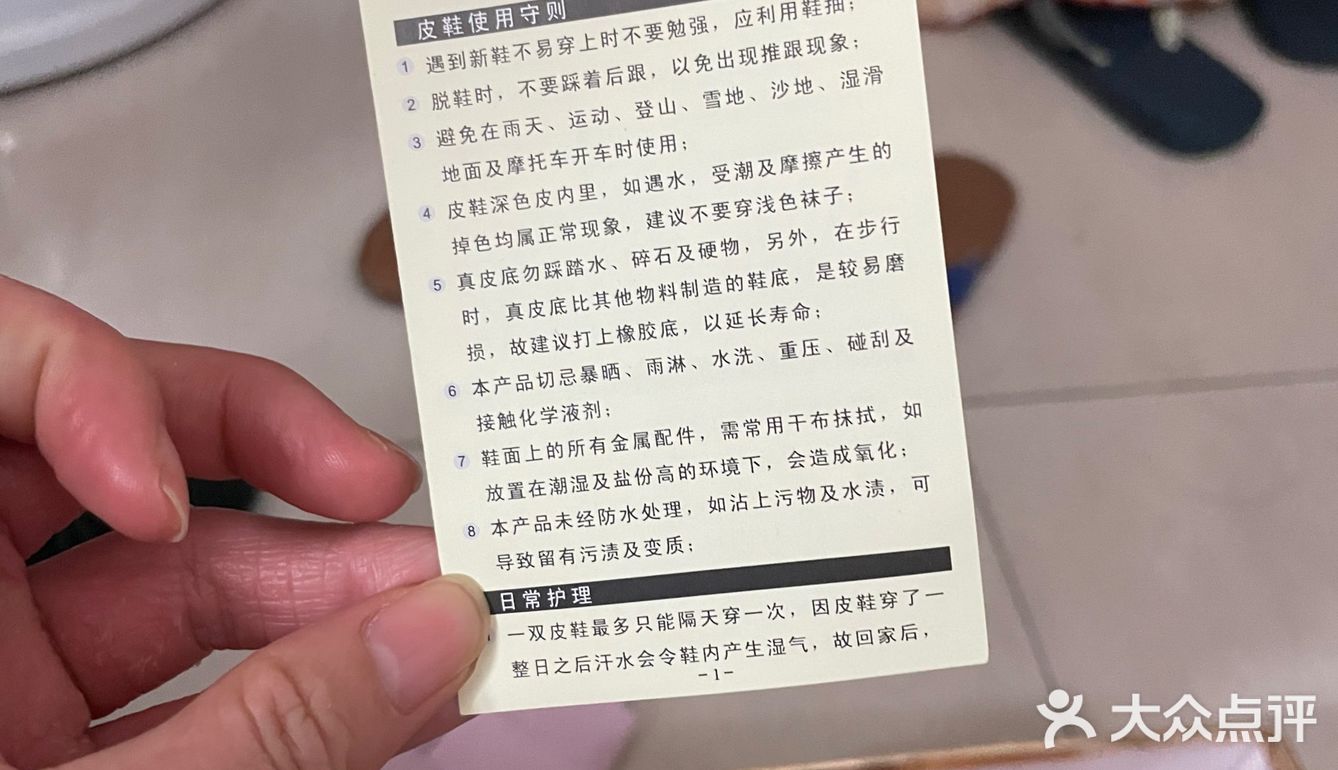 皮鞋使用守则
1 遇到新鞋不易穿上时不要勉强，应利用鞋抽；
2 脱鞋时，不要踩着后跟，以免出现推跟现象；
3 避免在雨天、运动、登山、雪地、沙地、湿滑
地面及摩托车开车时使用；
4 皮鞋深色皮内里，如遇水，受潮及摩擦产生的
掉色均属正常现象，建议不要穿浅色袜子；
5 真皮底勿踩踏水、碎石及硬物，另外，在步行
时，真皮底比其他物料制造的鞋底，是较易磨
损，故建议打上橡胶底，以延长寿命；
6 本产品切忌暴晒、雨淋、水洗、重压、碰刮及
接触化学液剂；
7 鞋面上的所有金属配件，需常用干布抹拭，如
放置在潮湿及盐份高的环境下，会造成氧化；
8 本产品未经防水处理，如沾上污物及水渍，可
导致留有污渍及变质；
日常护理
一双皮鞋最多只能隔天穿一次，因皮鞋穿了一
整日之后汗水会令鞋内产生湿气，故回家后，
-1-
大众点评